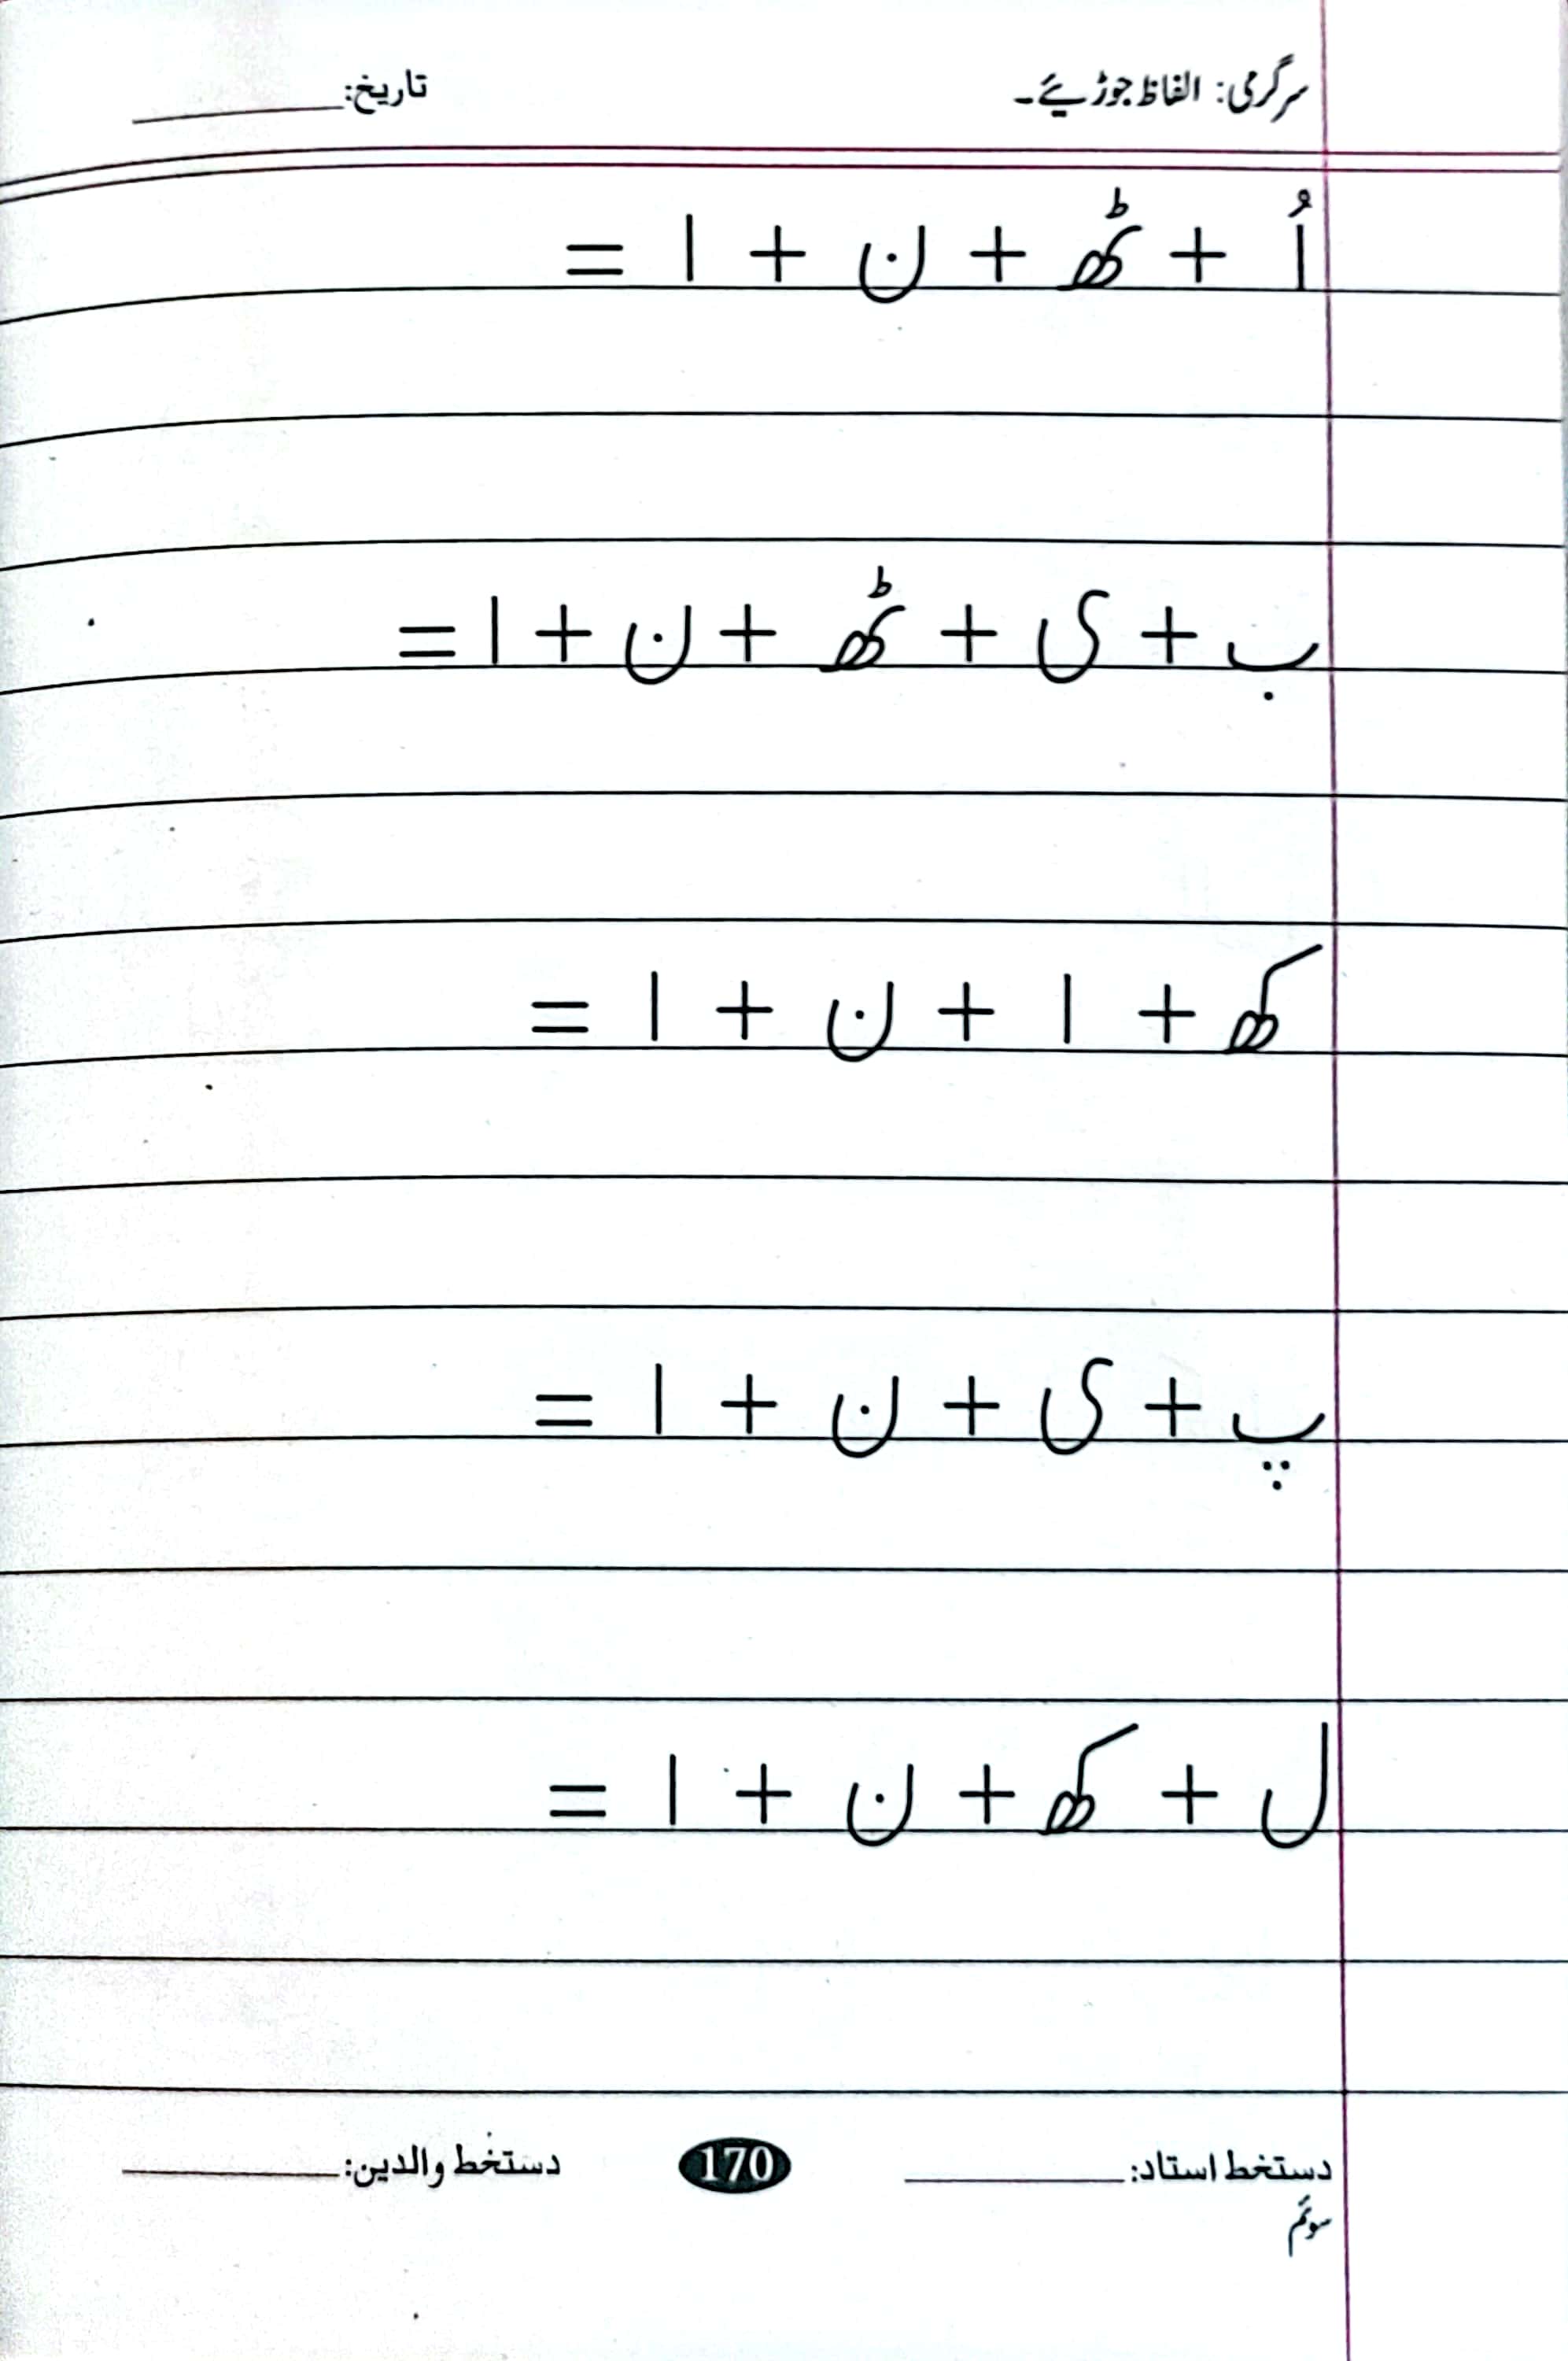 سرگرمی: الفاظ جوڑیئے۔ تاریخ: ______
اُ + ٹھ + ن + ا =
ب + ی + ٹھ + ن + ا =
کھ + ا + ن + ا =
پ + ی + ن + ا =
ل + کھ + ن + ا =
دستخط استاد: ______ 170 دستخط والدین: ______
سوئم